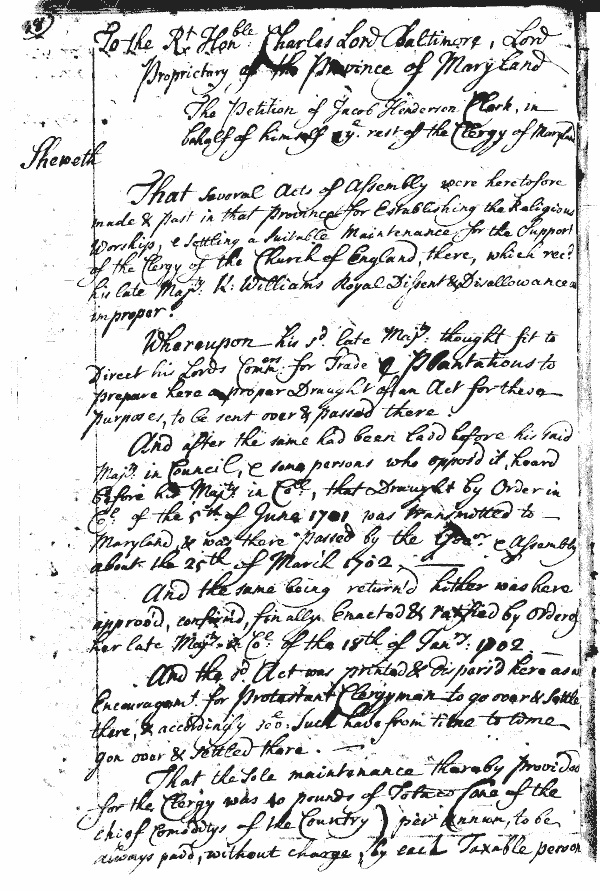 28
To the Rt Honble Charles Lord Baltimore, Lord
Proprietary of the Province of Maryland
The Petition of Jacob Henderson Clerk, in
behalf of himself & ye. rest of the Clergy of Maryland
Sheweth
That several Acts of Assembly were heretofore
made & past in that Province for Establishing the Religious
Worship, & settling a suitable Maintenance for the Support
of the Clergy of the Church of England there, which recd.
his late Majty. K: Williams Royal Dissent & Disallowance as
improper.
Whereupon his sd. late Majty: thought fit to
Direct his Lords Commrs. for Trade & Plantations to
prepare here a proper Draught of an Act for these
purposes, to be sent over & passed there
And after the same had been laid before his said
Majty. in Council, & some persons who opposd it, heard
before his Majty in Coll, that Draught by Order in
Col. of the 5th. of June 1701 was transmitted to
Maryland, & was there passed by the Govr. & Assembly
about the 25th of March 1702.
And the same being return'd hither was here
approv'd, confirm'd, finally Enacted & ratified by Order of
her late Majty. in Co: of the 18th. of Jany: 1702
And the sd Act was printed & dispers'd here as an
Encouragemt. for Protestant Clergyman to go over & Settle
there, & accordingly sevl. such have from time to time
gon over & settled there.
That the sole maintenance thereby provided
for the Clergy was 40 pounds of Tobacco (one of the
chief comoditys of the Country) per Annum, to be
always paid, without charge, by each Taxable person